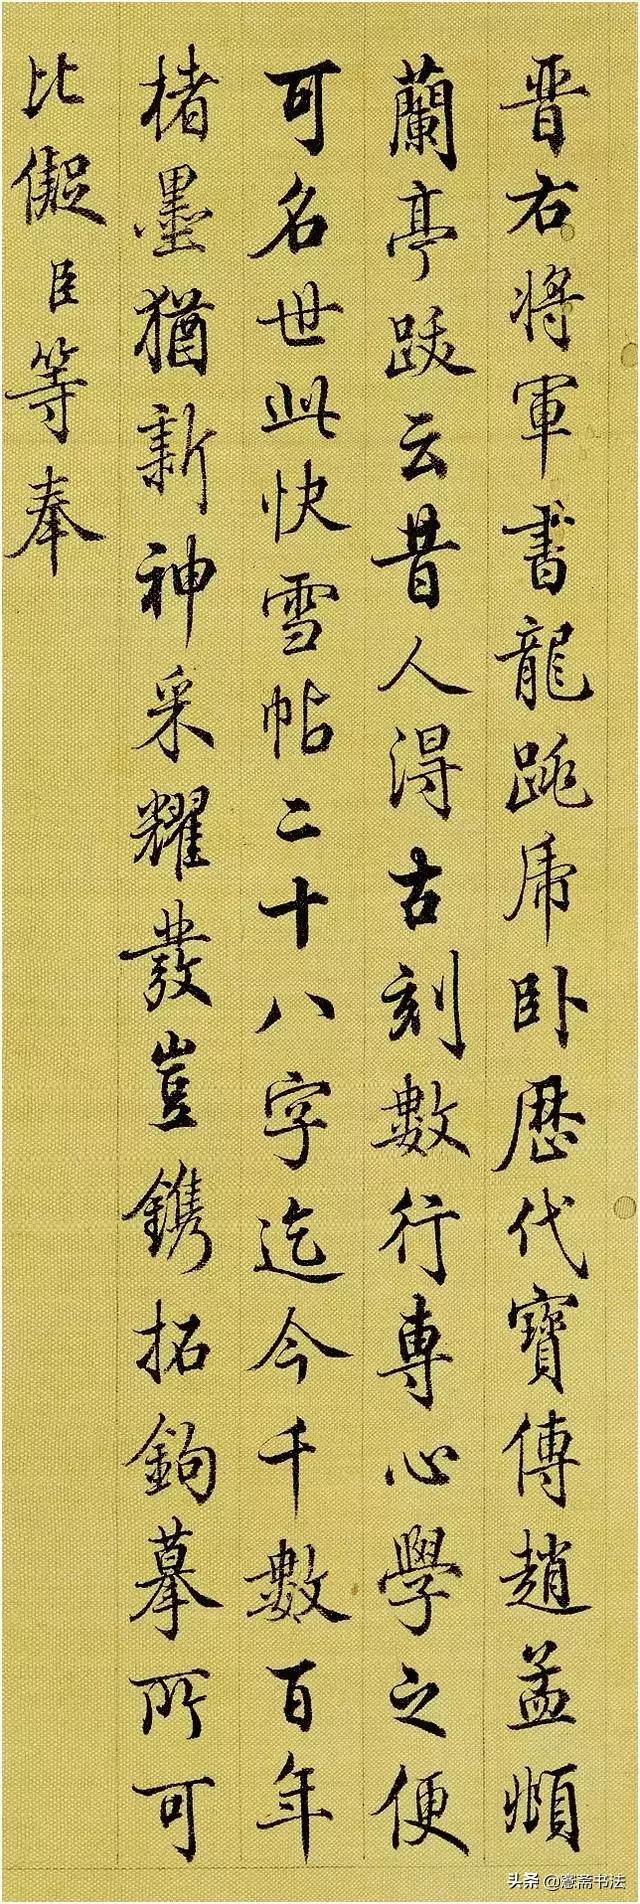 晉右將軍書龍跳虎卧歷代寶傳趙孟頫
蘭亭跋云昔人得古刻數行專心學之便
可名世此快雪帖二十八字迄今千數百年
楮墨猶新神采耀發豈鐫拓鉤摹所可
比儗臣等奉
头条@愙斋书法